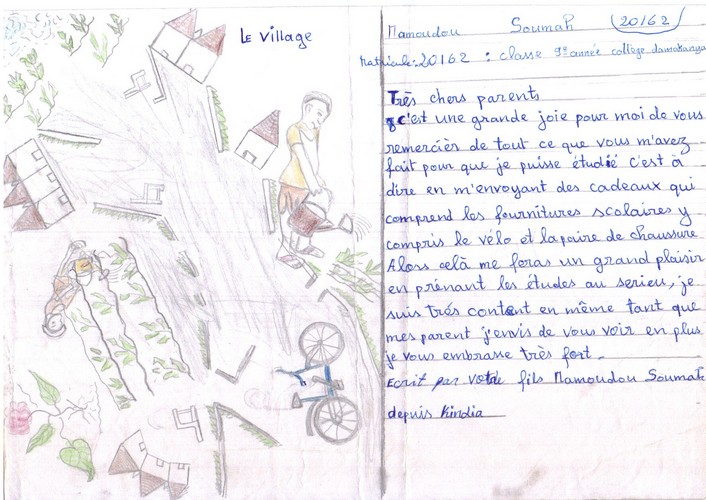 Le Village
Mamoudou Soumah (20162)
Matricule: 20162 : classe 9e année collège damakanya
Très chers parents
c'est une grande joie pour moi de vous
remercièr de tout ce que vous m'avez
fait pour que je puisse étudié c'est à
dire en m'envoyant des cadeaux qui
comprend les fournitures scolaires y
compris le vélo et la paire de chaussure
Alors celà me feras un grand plaisir
en prénant les études au serieu, je
suis très content en même tant que
mes parent j'envis de vous voir en plus
je vous embrasse très fort.
Ecrit par votre fils Mamoudou Soumah
depuis Kindia